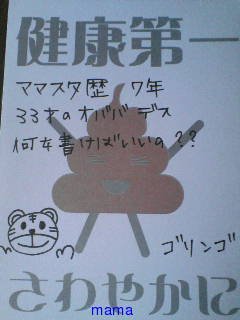 健康第一
ママスタ歴 7年
33才のオババデス
何を書けばいいの??
ゴリンゴ
さわやかに
mama